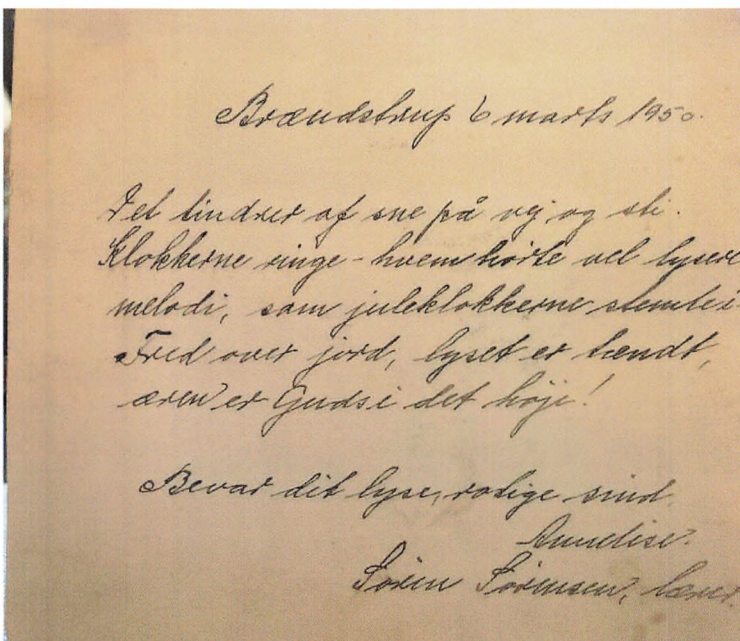 Brændstrup 6 marts 1950.
Det tindrer af sne på vej og sti.
Klokkerne ringe - hvem hørte vel lysere
melodi, som juleklokkerne stemte i
Fred over jord, lyset er tændt,
æren er Guds i det høje!
Bevar dit lyse, rolige sind.
Annelise.
Søren Sørensen, lærer.